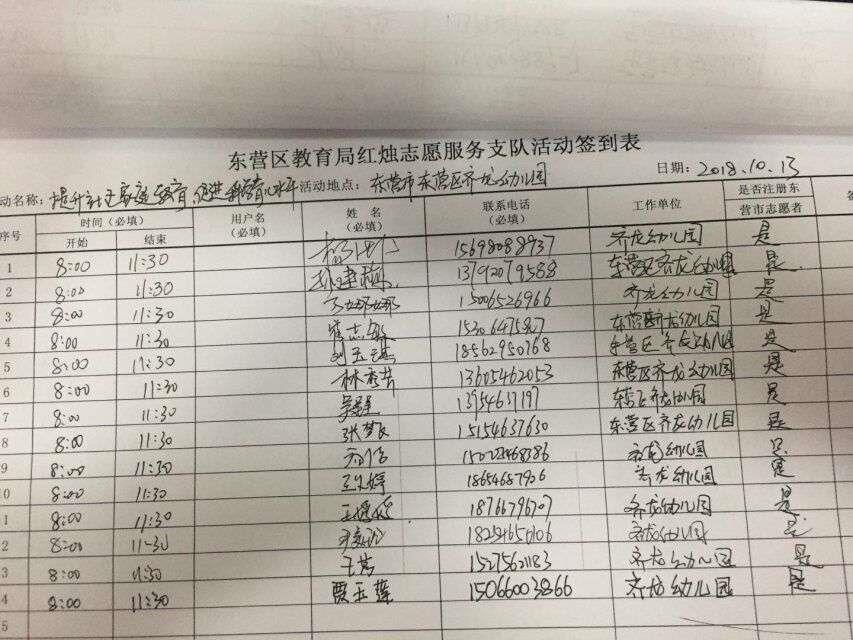 东营区教育局红烛志愿服务支队活动签到表
动名称: 提升 家庭教育,促进 水平 活动地点: 东营市东营区齐龙幼儿园 日期: 2018.10.13
序号 时间(必填) 用户名(必填) 姓名(必填) 联系电话(必填) 工作单位 是否注册东营市志愿者
开始 结束
1 8:00 11:30 15698088937 齐龙幼儿园 是
2 8:00 11:30 孙建栋 13792079588 东营区齐龙幼儿园 是
3 8:00 11:30 15006526966 齐龙幼儿园 是
4 8:00 11:30 志敏 15206475827 东营区齐龙幼儿园 是
5 8:00 11:30 刘玉 18562950768 东营区齐龙幼儿园 是
6 8:00 11:30 林秀芳 13605462053 东营区齐龙幼儿园 是
7 8:00 11:30 东营区齐龙幼儿园 是
8 8:00 11:30 张梦 15154637630 东营区齐龙幼儿园 是
9 8:00 11:30 齐龙幼儿园 是
0 8:00 11:30 王 婷 18654687906 齐龙幼儿园 是
1 8:00 11:30 王 18766796707 齐龙幼儿园 是
2 8:00 11:30 18254650106 齐龙幼儿园 是
3 8:00 11:30 王芳 15275621183 齐龙幼儿园 是
4 8:00 11:30 贾玉莲 15066003866 齐龙幼儿园 是
5